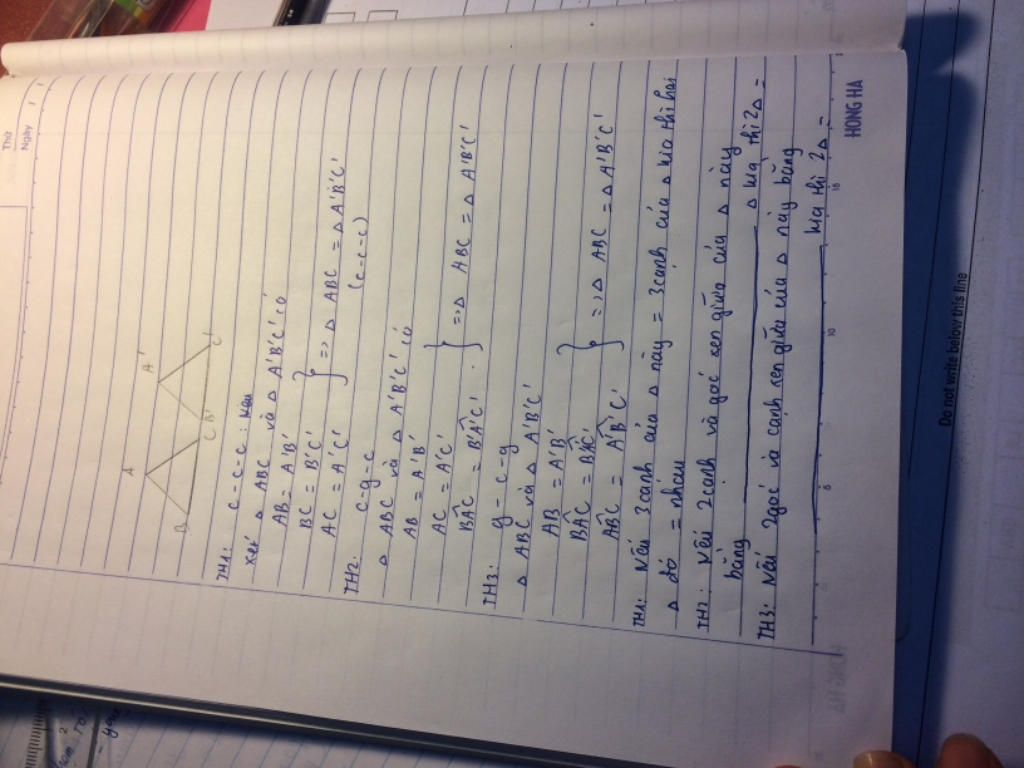 Thứ
Ngày
A
A'
B
C
B'
C'
TH1: c-c-c: Nếu
xét △ ABC và △ A'B'C' có
AB = A'B'
BC = B'C'
AC = A'C'
} => △ ABC = △ A'B'C'
(c-c-c)
TH2: c-g-c
△ ABC và △ A'B'C' có
AB = A'B'
AC = A'C'
BÂC = B'Â'C'
} => △ ABC = △ A'B'C'
TH3: g-c-g
△ ABC và △ A'B'C'
AB = A'B'
BÂC =
ABC = A'B'C'
} => △ ABC = △ A'B'C'
TH1: Nếu 3 cạnh của △ này = 3 cạnh của △ kia thì hai
△ đó = nhau
TH2: Nếu 2 cạnh và góc xen giữa của △ này
bằng △ kia thì 2△ =
TH3: Nếu 2 góc và cạnh xen giữa của △ này bằng
kia thì 2△ =
5
10
15
HONG HA
Do not write below this line